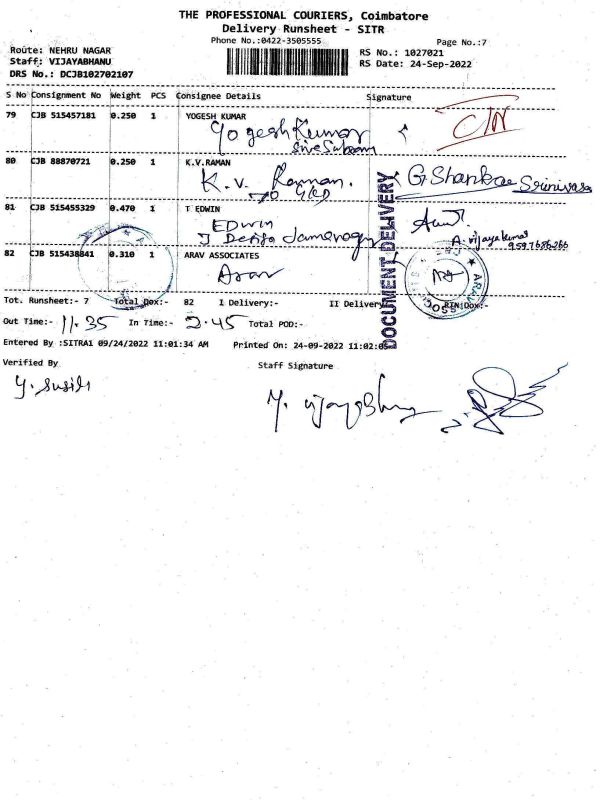 THE PROFESSIONAL COURIERS, Coimbatore
Delivery Runsheet - SITR
Phone No.:0422-3505555
Page No.:7
Route: NEHRU NAGAR
RS No.: 1027021
Staff: VIJAYABHANU
RS Date: 24-Sep-2022
DRS No.: DCJB102702107
S No Consignment No Weight PCS Consignee Details Signature
79 CJB 515457181 0.250 1 YOGESH KUMAR
Yogesh Kumar
80 CJB 88870721 0.250 1 K.V.RAMAN
K.V. Raman.
G Shankar Srinivasa
81 CJB 515455329 0.470 1 T EDWIN
EDwin
A. vijayakumar
9597686266
82 CJB 515438841 0.310 1 ARAV ASSOCIATES
Arav
DOCUMENT DELIVERY
Tot. Runsheet:- 7 Total Dox:- 82 I Delivery:- II Delivery
Out Time:- 11.35 In Time:- 2.45 Total POD:-
Entered By :SITRA1 09/24/2022 11:01:34 AM Printed On: 24-09-2022 11:02:05
Verified By
Staff Signature